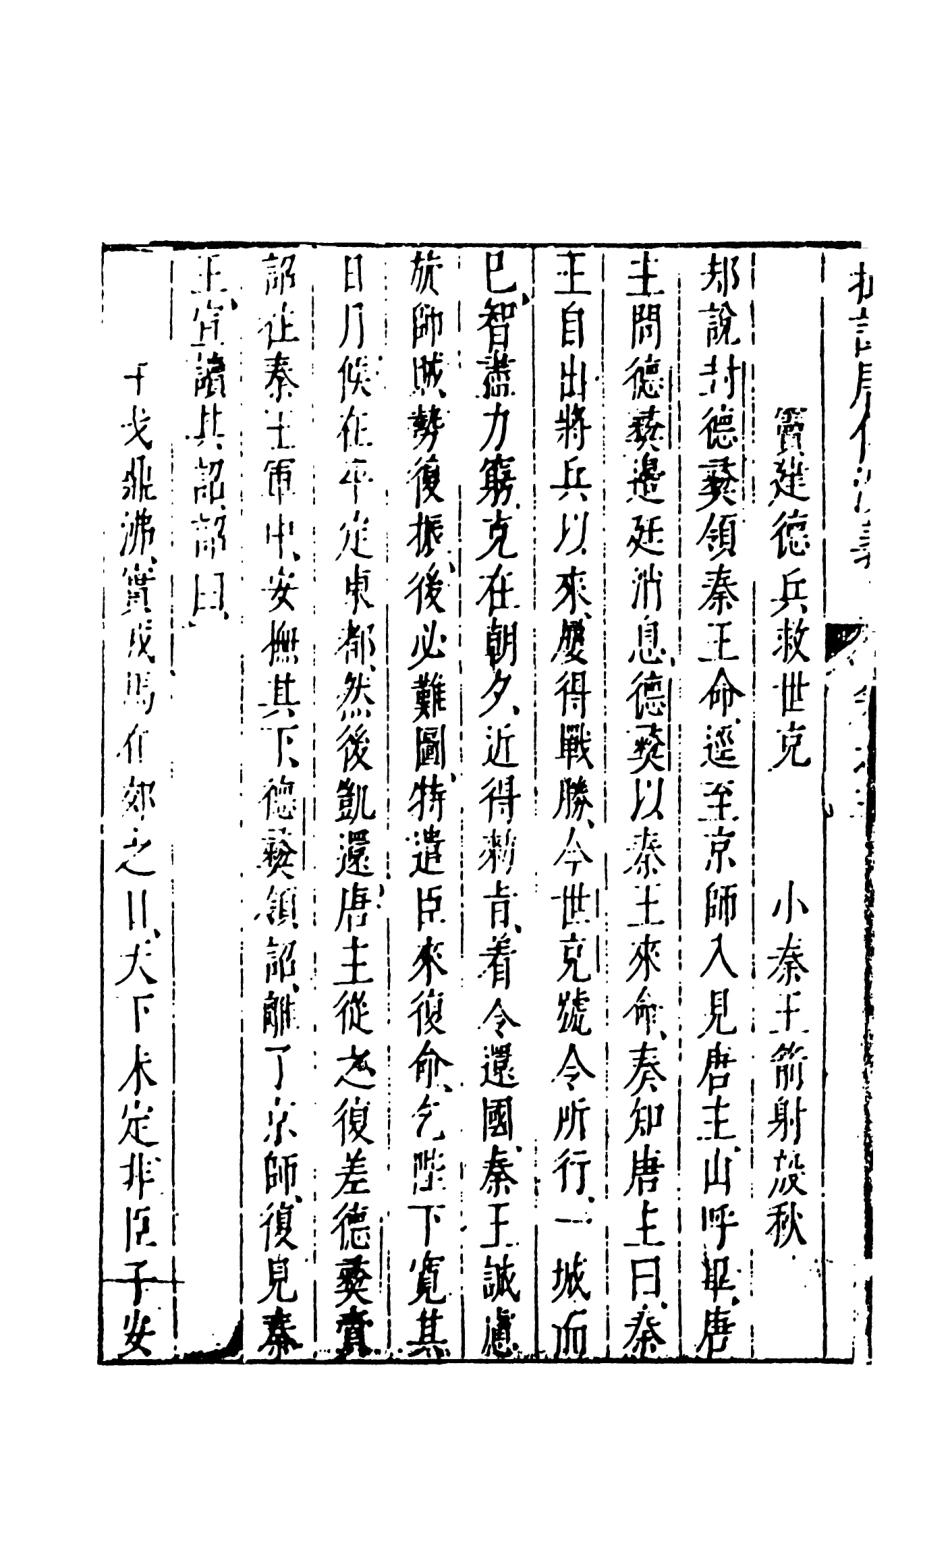 竇建德兵救世充　小秦王箭射殷秋
却說封德彝領秦王命、逕至京師入見唐主、山呼畢、唐
主問德彝邊廷消息、德彝以秦王來命、奏知唐主曰、秦
王自出將兵以來、屢得戰勝、今世充號令所行、一城而
已、智盡力窮、克在朝夕、近得勅旨、着令還國、秦王誠慮
旋師、賊勢復振、後必難圖、特遣臣來復命、乞陛下寬其
日月、候在平定東都、然後凱還、唐主從之、復差德彝賫
詔在秦王軍中、安撫其下、德彝領詔、離了京師、復見秦
王、宣讀其詔、詔曰、
干戈鼎沸、實戎馬在郊之日、天下未定、非臣子安